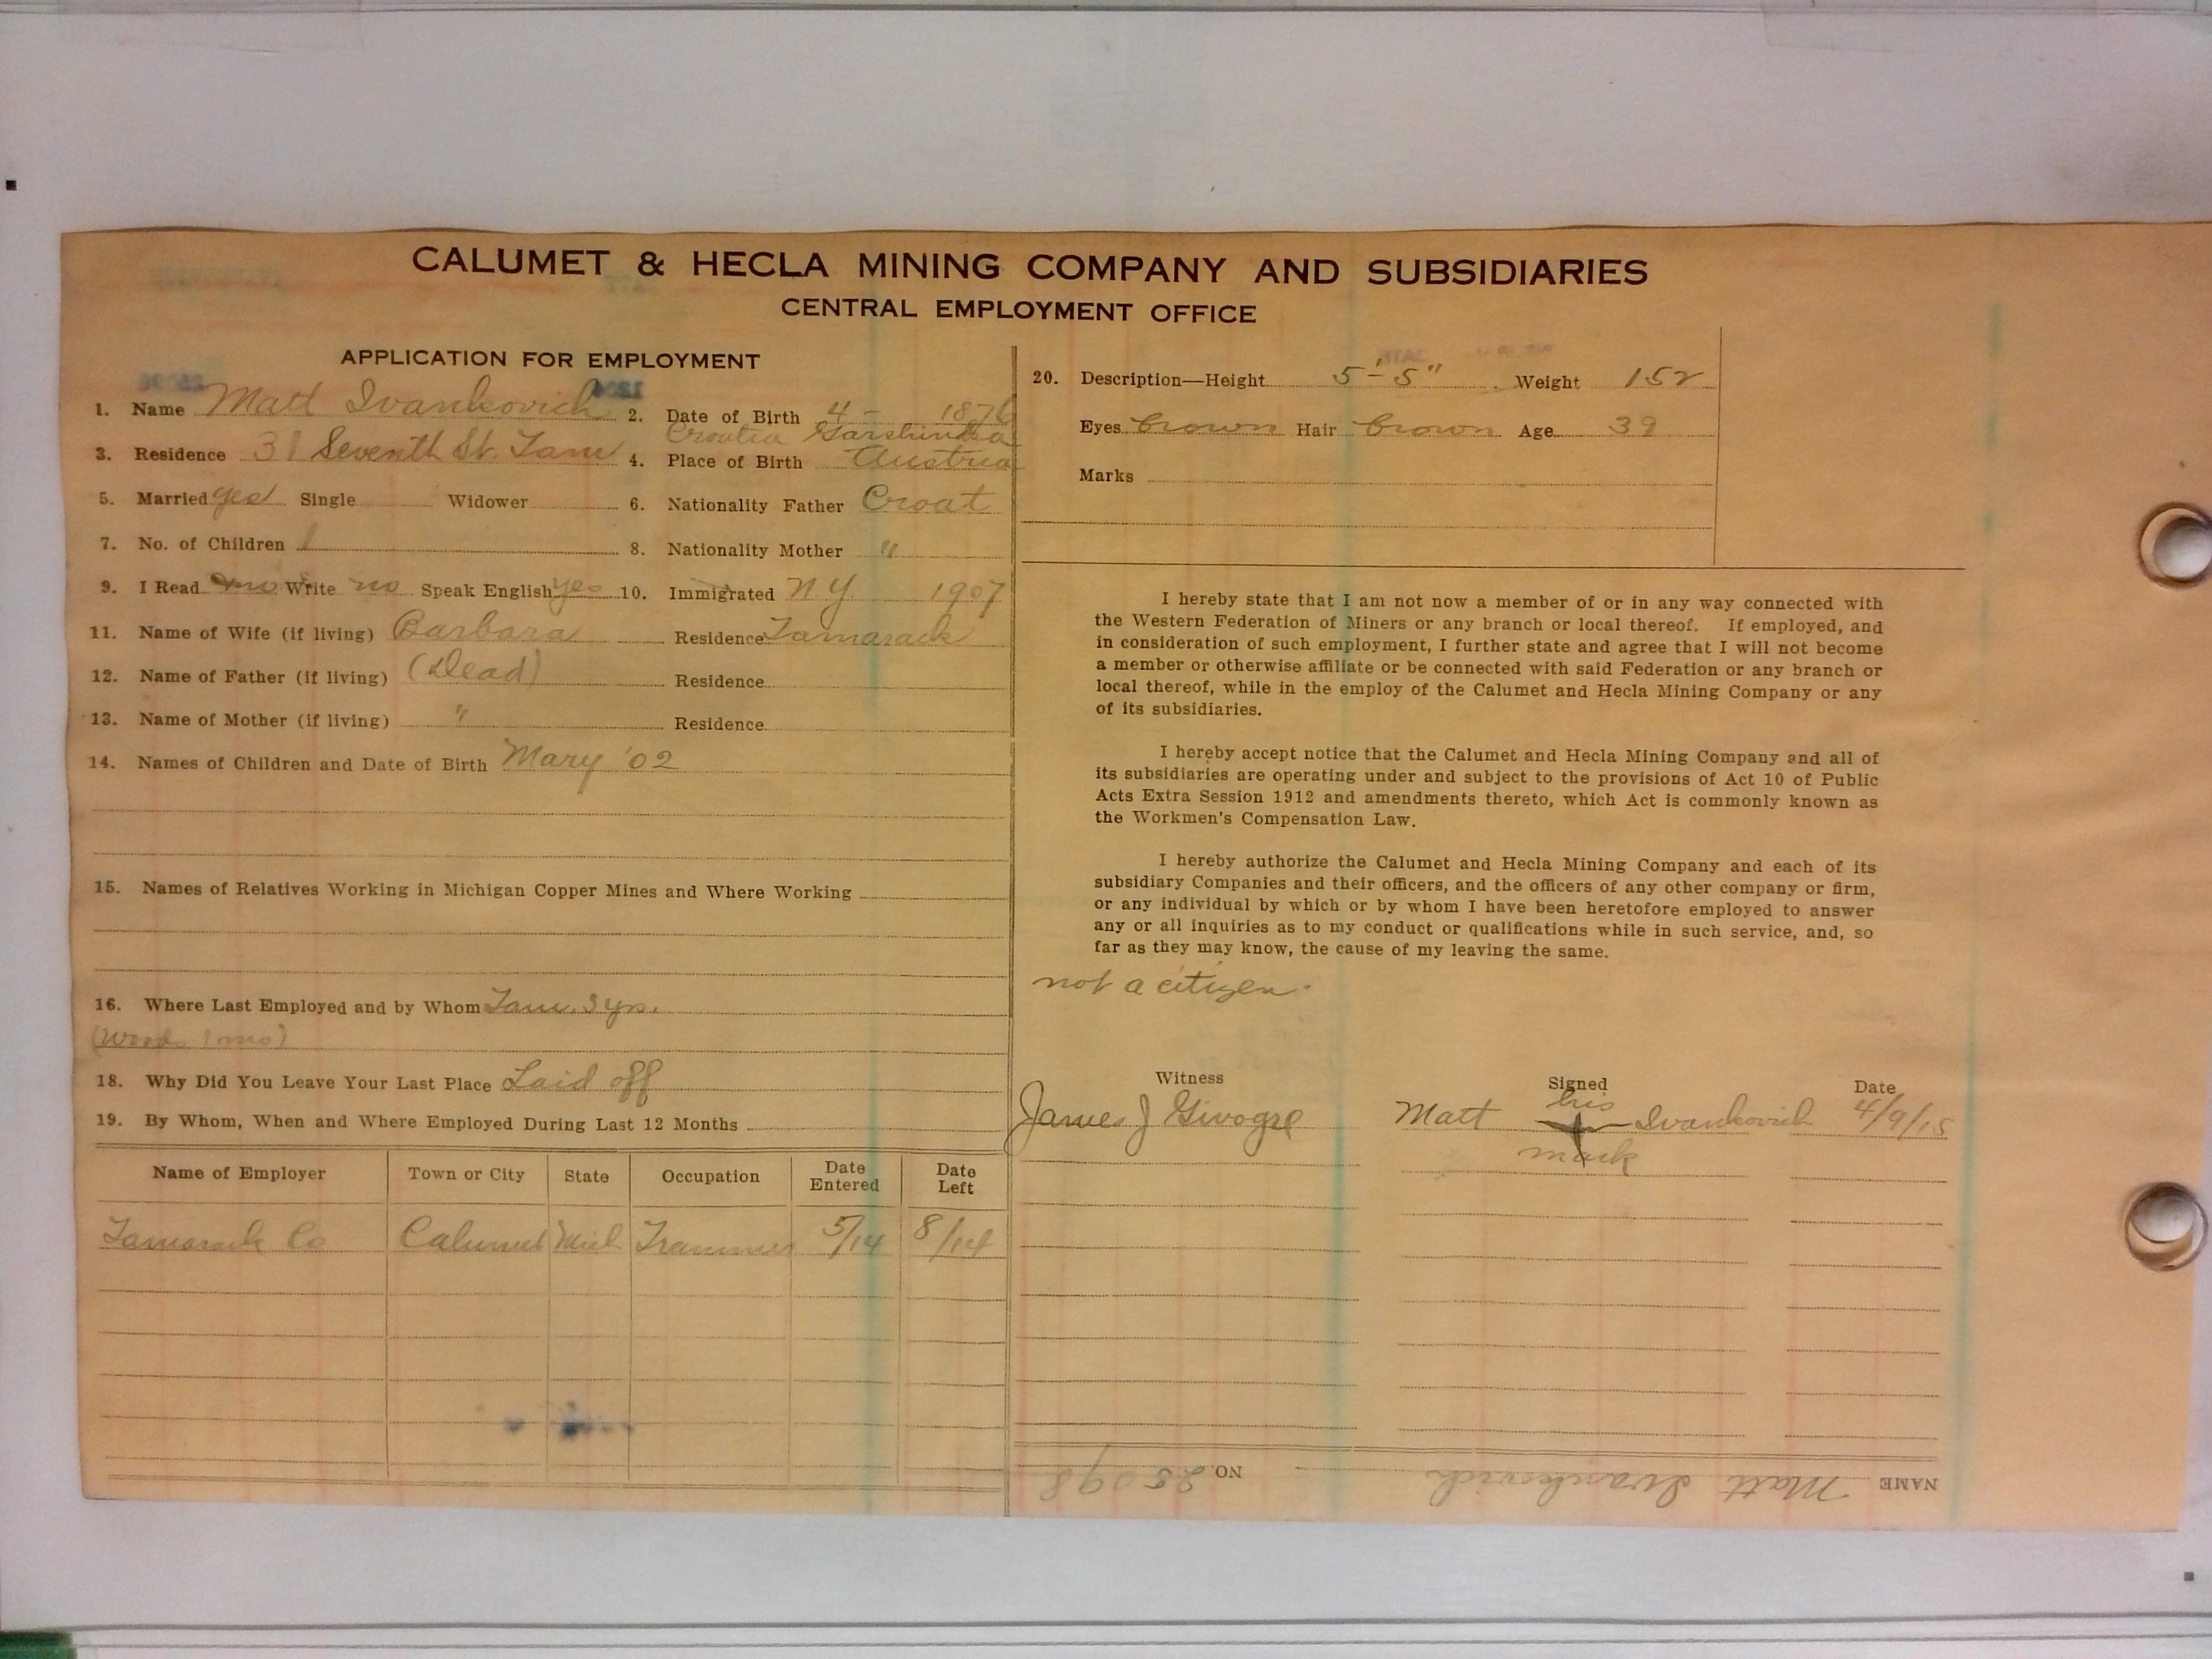 CALUMET & HECLA MINING COMPANY AND SUBSIDIARIES
CENTRAL EMPLOYMENT OFFICE
APPLICATION FOR EMPLOYMENT
1. Name Matt Ivankovich
2. Date of Birth 4 - 1876
3. Residence 31 Seventh St. Tam
Croatia
4. Place of Birth Austria
5. Married yes Single Widower
6. Nationality Father Croat
7. No. of Children 1
8. Nationality Mother "
9. I Read no Write no Speak English yes
10. Immigrated N.Y. 1907
11. Name of Wife (if living) Barbara Residence Tamarack
12. Name of Father (if living) (Dead) Residence
13. Name of Mother (if living) " Residence
14. Names of Children and Date of Birth Mary '02
15. Names of Relatives Working in Michigan Copper Mines and Where Working
16. Where Last Employed and by Whom Tam. 3 yrs.
(Woods 1 mo)
18. Why Did You Leave Your Last Place Laid off
19. By Whom, When and Where Employed During Last 12 Months
Name of Employer Town or City State Occupation Date Entered Date Left
Tamarack Co Calumet Mich Trammer 5/14 8/14
20. Description—Height 5'-5" Weight 152
Eyes brown Hair brown Age 39
Marks
I hereby state that I am not now a member of or in any way connected with
the Western Federation of Miners or any branch or local thereof. If employed, and
in consideration of such employment, I further state and agree that I will not become
a member or otherwise affiliate or be connected with said Federation or any branch or
local thereof, while in the employ of the Calumet and Hecla Mining Company or any
of its subsidiaries.
I hereby accept notice that the Calumet and Hecla Mining Company and all of
its subsidiaries are operating under and subject to the provisions of Act 10 of Public
Acts Extra Session 1912 and amendments thereto, which Act is commonly known as
the Workmen's Compensation Law.
I hereby authorize the Calumet and Hecla Mining Company and each of its
subsidiary Companies and their officers, and the officers of any other company or firm,
or any individual by which or by whom I have been heretofore employed to answer
any or all inquiries as to my conduct or qualifications while in such service, and, so
far as they may know, the cause of my leaving the same.
not a citizen.
Witness Signed Date
his
James J Matt Ivankovich 4/9/15
mark
NAME Matt Ivankovich NO. 25098